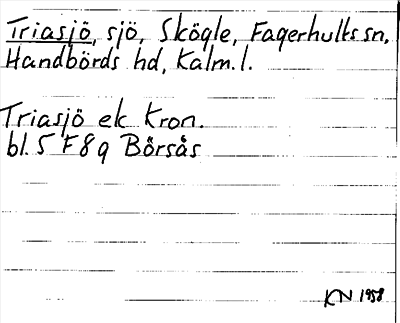 Triasjö, sjö, Skögle, Fagerhults sn,
Handbörds hd, Kalm. l.
Triasjö ek Kron.
bl. 5 F 8 g Börsås
KN 1958